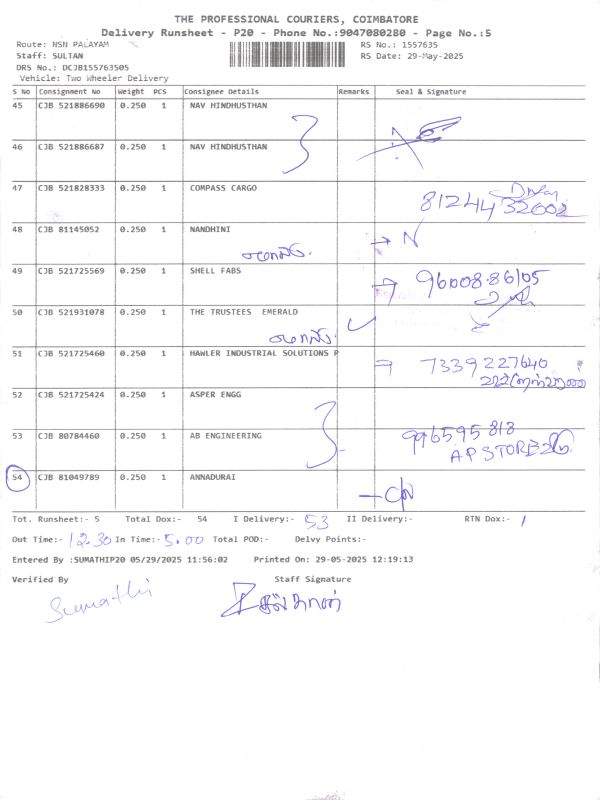 THE PROFESSIONAL COURIERS, COIMBATORE
Delivery Runsheet - P20 - Phone No.:9047080280 - Page No.:5
Route: NSN PALAYAM RS No.: 1557635
Staff: SULTAN RS Date: 29-May-2025
DRS No.: DCJB155763505
Vehicle: Two Wheeler Delivery
S No Consignment No Weight PCS Consignee Details Remarks Seal & Signature
45 CJB 521886690 0.250 1 NAV HINDHUSTHAN
46 CJB 521886687 0.250 1 NAV HINDHUSTHAN
47 CJB 521828333 0.250 1 COMPASS CARGO
81244 32602
48 CJB 81145052 0.250 1 NANDHINI
→ N
49 CJB 521725569 0.250 1 SHELL FABS
→ 96008.86105
50 CJB 521931078 0.250 1 THE TRUSTEES EMERALD
51 CJB 521725460 0.250 1 HAWLER INDUSTRIAL SOLUTIONS P
7339227640
52 CJB 521725424 0.250 1 ASPER ENGG
53 CJB 80784460 0.250 1 AB ENGINEERING
996595 818
A.P STORE
54 CJB 81049789 0.250 1 ANNADURAI
Tot. Runsheet:- 5 Total Dox:- 54 I Delivery:- 53 II Delivery:- RTN Dox:- 1
Out Time:- 12.30 In Time:- 5.00 Total POD:- Delvy Points:-
Entered By :SUMATHIP20 05/29/2025 11:56:02 Printed On: 29-05-2025 12:19:13
Verified By Staff Signature
Sumathi